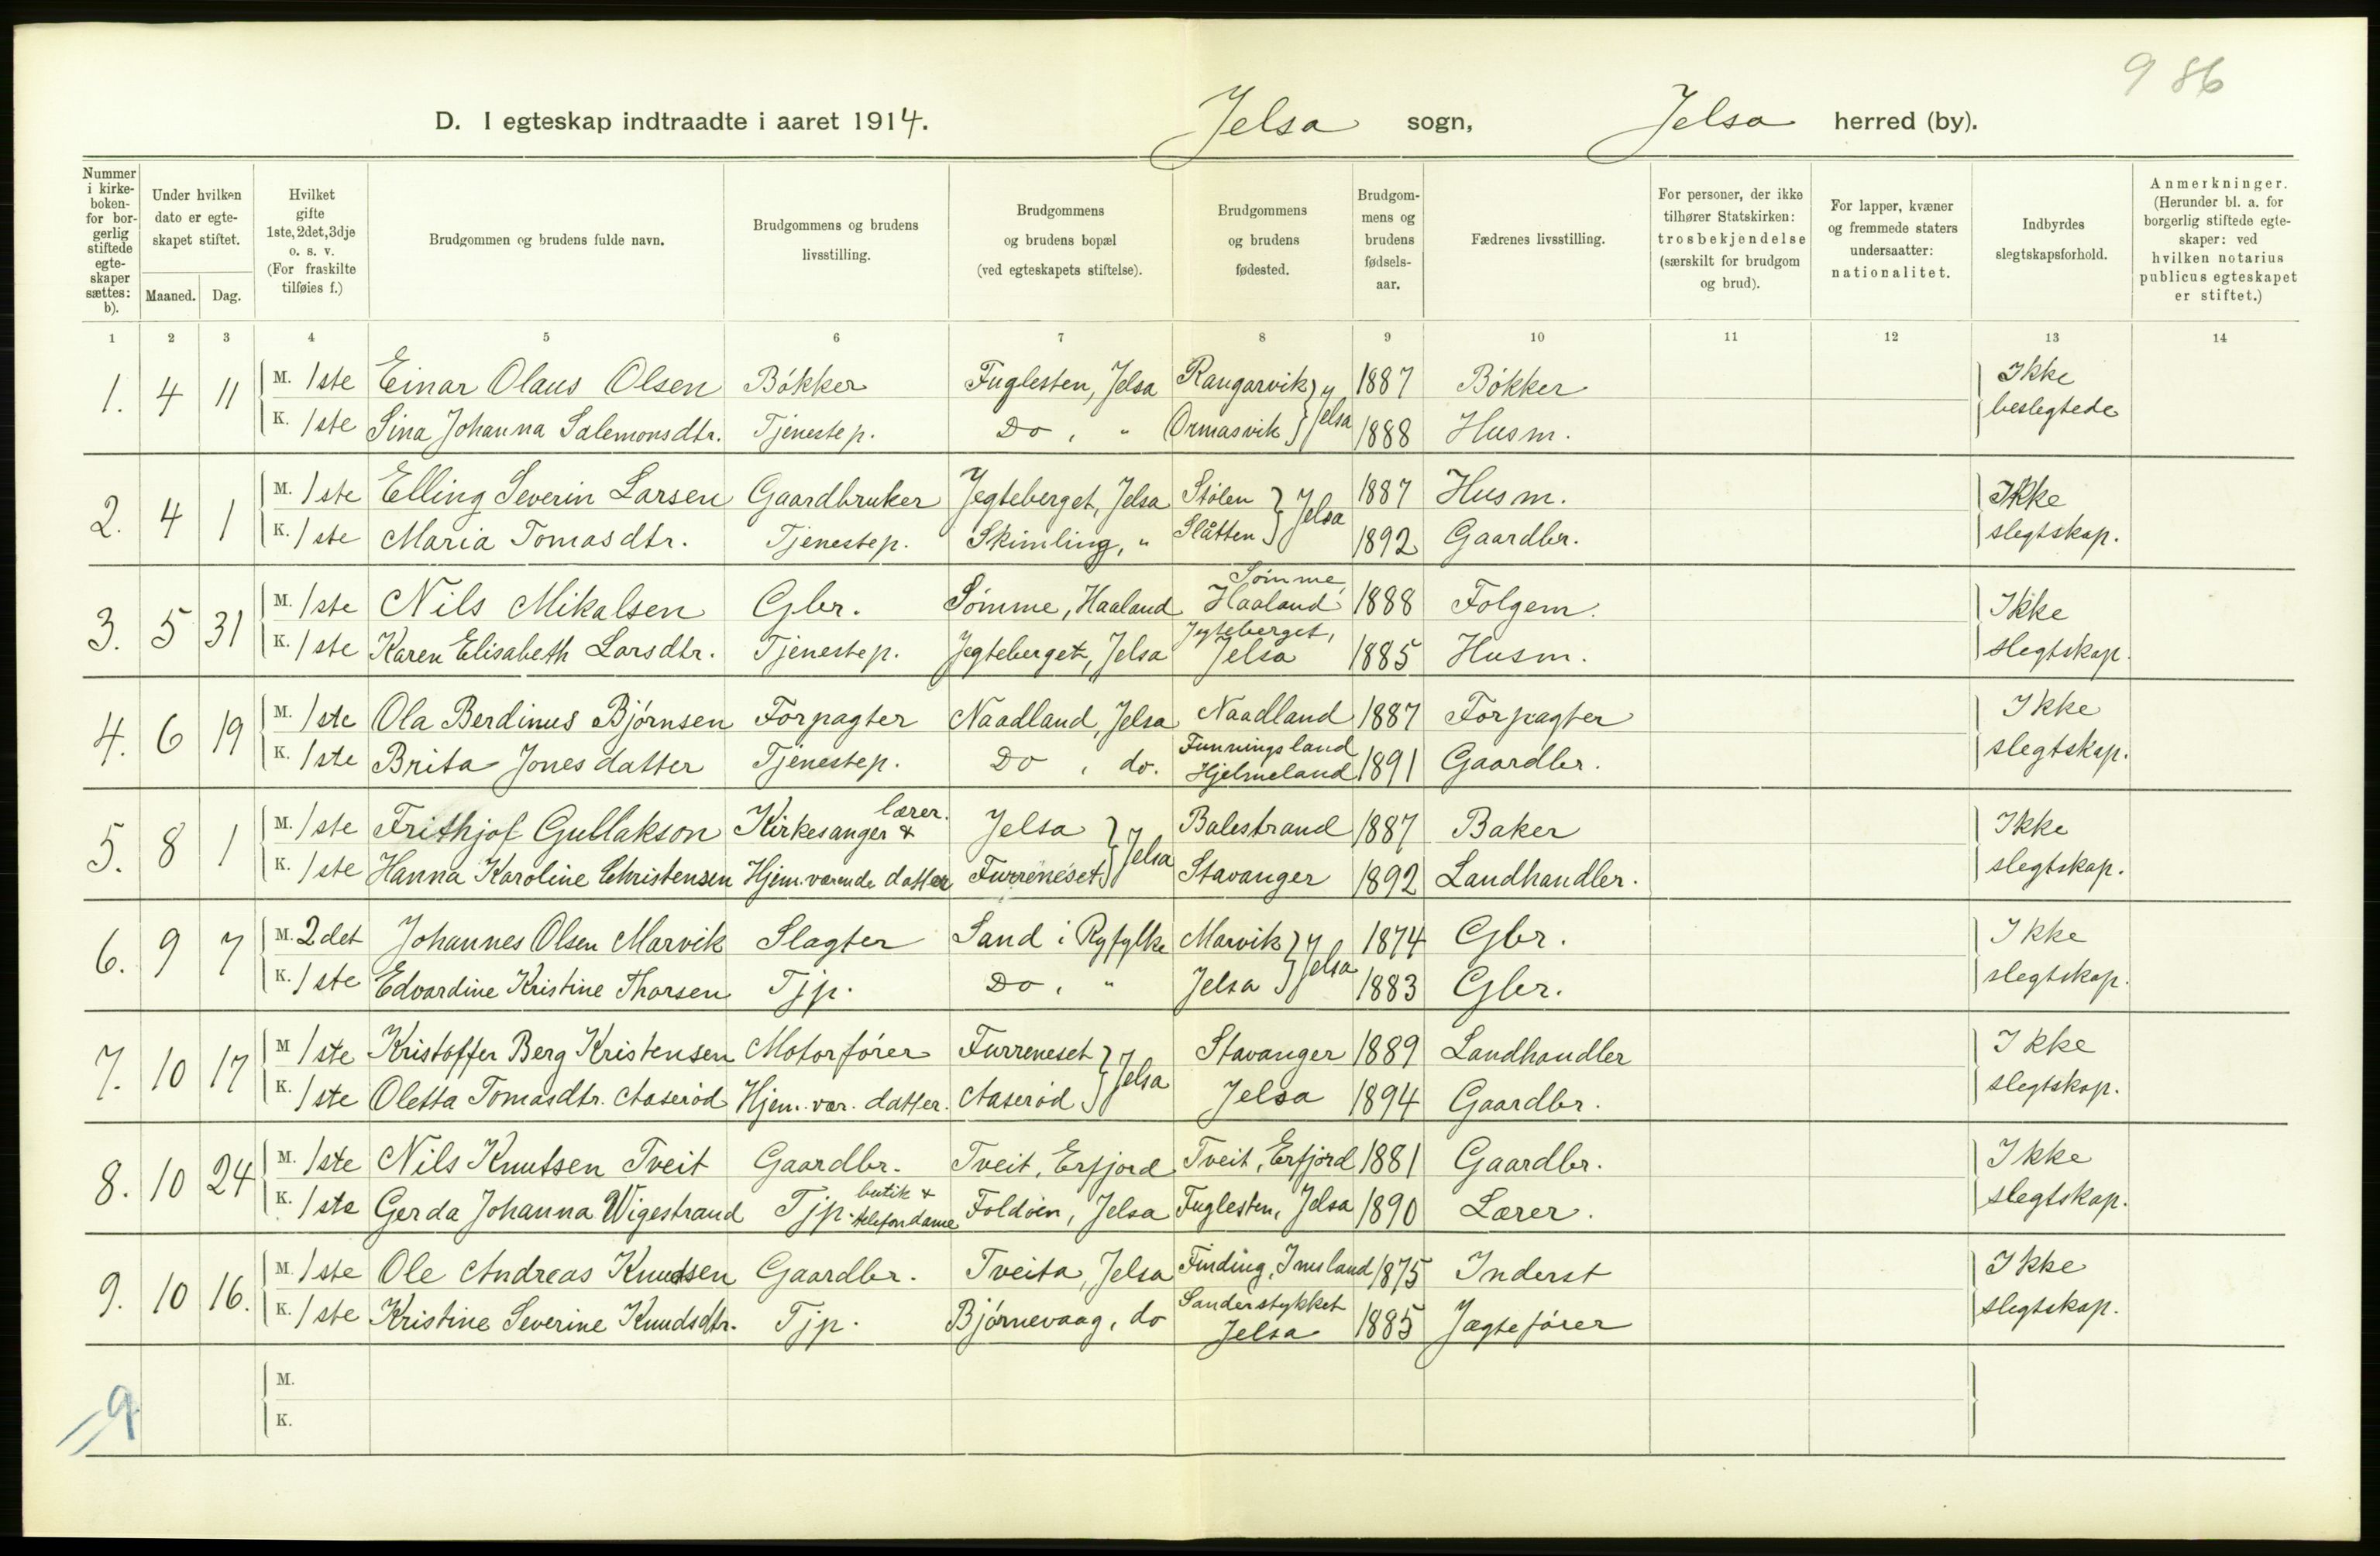 9 86
D. I egteskap indtraadte i aaret 1914. Jelsa sogn, Jelsa herred (by).
Nummer i kirkeboken- for borgerlig stiftede egteskaper sættes: b). | Under hvilken dato er egteskapet stiftet. Maaned. Dag. | Hvilket gifte 1ste, 2det, 3dje o. s. v. (For fraskilte tilføies f.) | Brudgommen og brudens fulde navn. | Brudgommens og brudens livsstilling. | Brudgommens og brudens bopæl (ved egteskapets stiftelse). | Brudgommens og brudens fødested. | Brudgommens og brudens fødselsaar. | Fædrenes livsstilling. | For personer, der ikke tilhører Statskirken: trosbekjendelse (særskilt for brudgom og brud). | For lapper, kvæner og fremmede staters undersaatter: nationalitet. | Indbyrdes slegtskapsforhold. | Anmerkninger. (Herunder bl. a. for borgerlig stiftede egteskaper: ved hvilken notarius publicus egteskapet er stiftet.)
1 2 3 4 5 6 7 8 9 10 11 12 13 14
1. 4 11 M. 1ste Einar Olaus Olsen Bøkker Fuglesten, Jelsa Rangarvik } Jelsa 1887 Bøkker Ikke
K. 1ste Sina Johanna Salemonsdtr. Tjenestep. Do, " Ormasvik 1888 Husm. beslegtede
2. 4 1 M. 1ste Elling Severin Larsen Gaardbruker Jegteberget, Jelsa Stølen } Jelsa 1887 Husm. Ikke
K. 1ste Maria Tomasdtr. Tjenestep. Skimling, " Slåtten 1892 Gaardbr. slegtskap.
3. 5 31 M. 1ste Nils Mikalsen Gbr. Sømme, Haaland Sømme, Haaland 1888 Folgem. Ikke
K. 1ste Karen Elisabeth Larsdtr. Tjenestep. Jegteberget, Jelsa Jegteberget, Jelsa 1885 Husm. slegtskap.
4. 6 19 M. 1ste Ola Berdinus Bjørnsen Forpagter Naadland, Jelsa Naadland 1887 Forpagter Ikke
K. 1ste Brita Jonesdatter Tjenestep. Do, do. Funningsland Hjelmeland 1891 Gaardbr. slegtskap.
5. 8 1 M. 1ste Frithjof Gullakson Kirkesanger & lærer. Jelsa } Jelsa Balestrand 1887 Baker Ikke
K. 1ste Hanna Karoline Christensen Hjem. værende datter Furreneset Stavanger 1892 Landhandler. slegtskap.
6. 9 7 M. 2det Johannes Olsen Marvik Slagter Sand i Ryfylke Marvik } Jelsa 1874 Gbr. Ikke
K. 1ste Edvardine Kristine Thorsen Tjp. Do, " Jelsa 1883 Gbr. slegtskap.
7. 10 17 M 1ste Kristoffer Berg Kristensen Motorfører Furreneset } Jelsa Stavanger 1889 Landhandler Ikke
K. 1ste Oletta Tomasdtr. Aaserød Hjem. vær. datter. Aaserød Jelsa 1894 Gaardbr. slegtskap.
8. 10 24 M. 1ste Nils Knutsen Tveit Gaardbr. Tveit, Erfjord Tveit, Erfjord 1881 Gaardbr. Ikke
K. 1ste Gerda Johanna Wigestrand Tjp. butik & telefondame Foldøen, Jelsa Fuglesten, Jelsa 1890 Lærer. slegtskap.
9. 10 16. M. 1ste Ole Andreas Knudsen Gaardbr. Tveita, Jelsa Finding, Imsland 1875 Inderst Ikke
K. 1ste Kristine Severine Knudsdtr. Tjp. Bjørnevaag, do Sanderstykket Jelsa 1885 Jægtefører slegtskap.
M.
9
K.